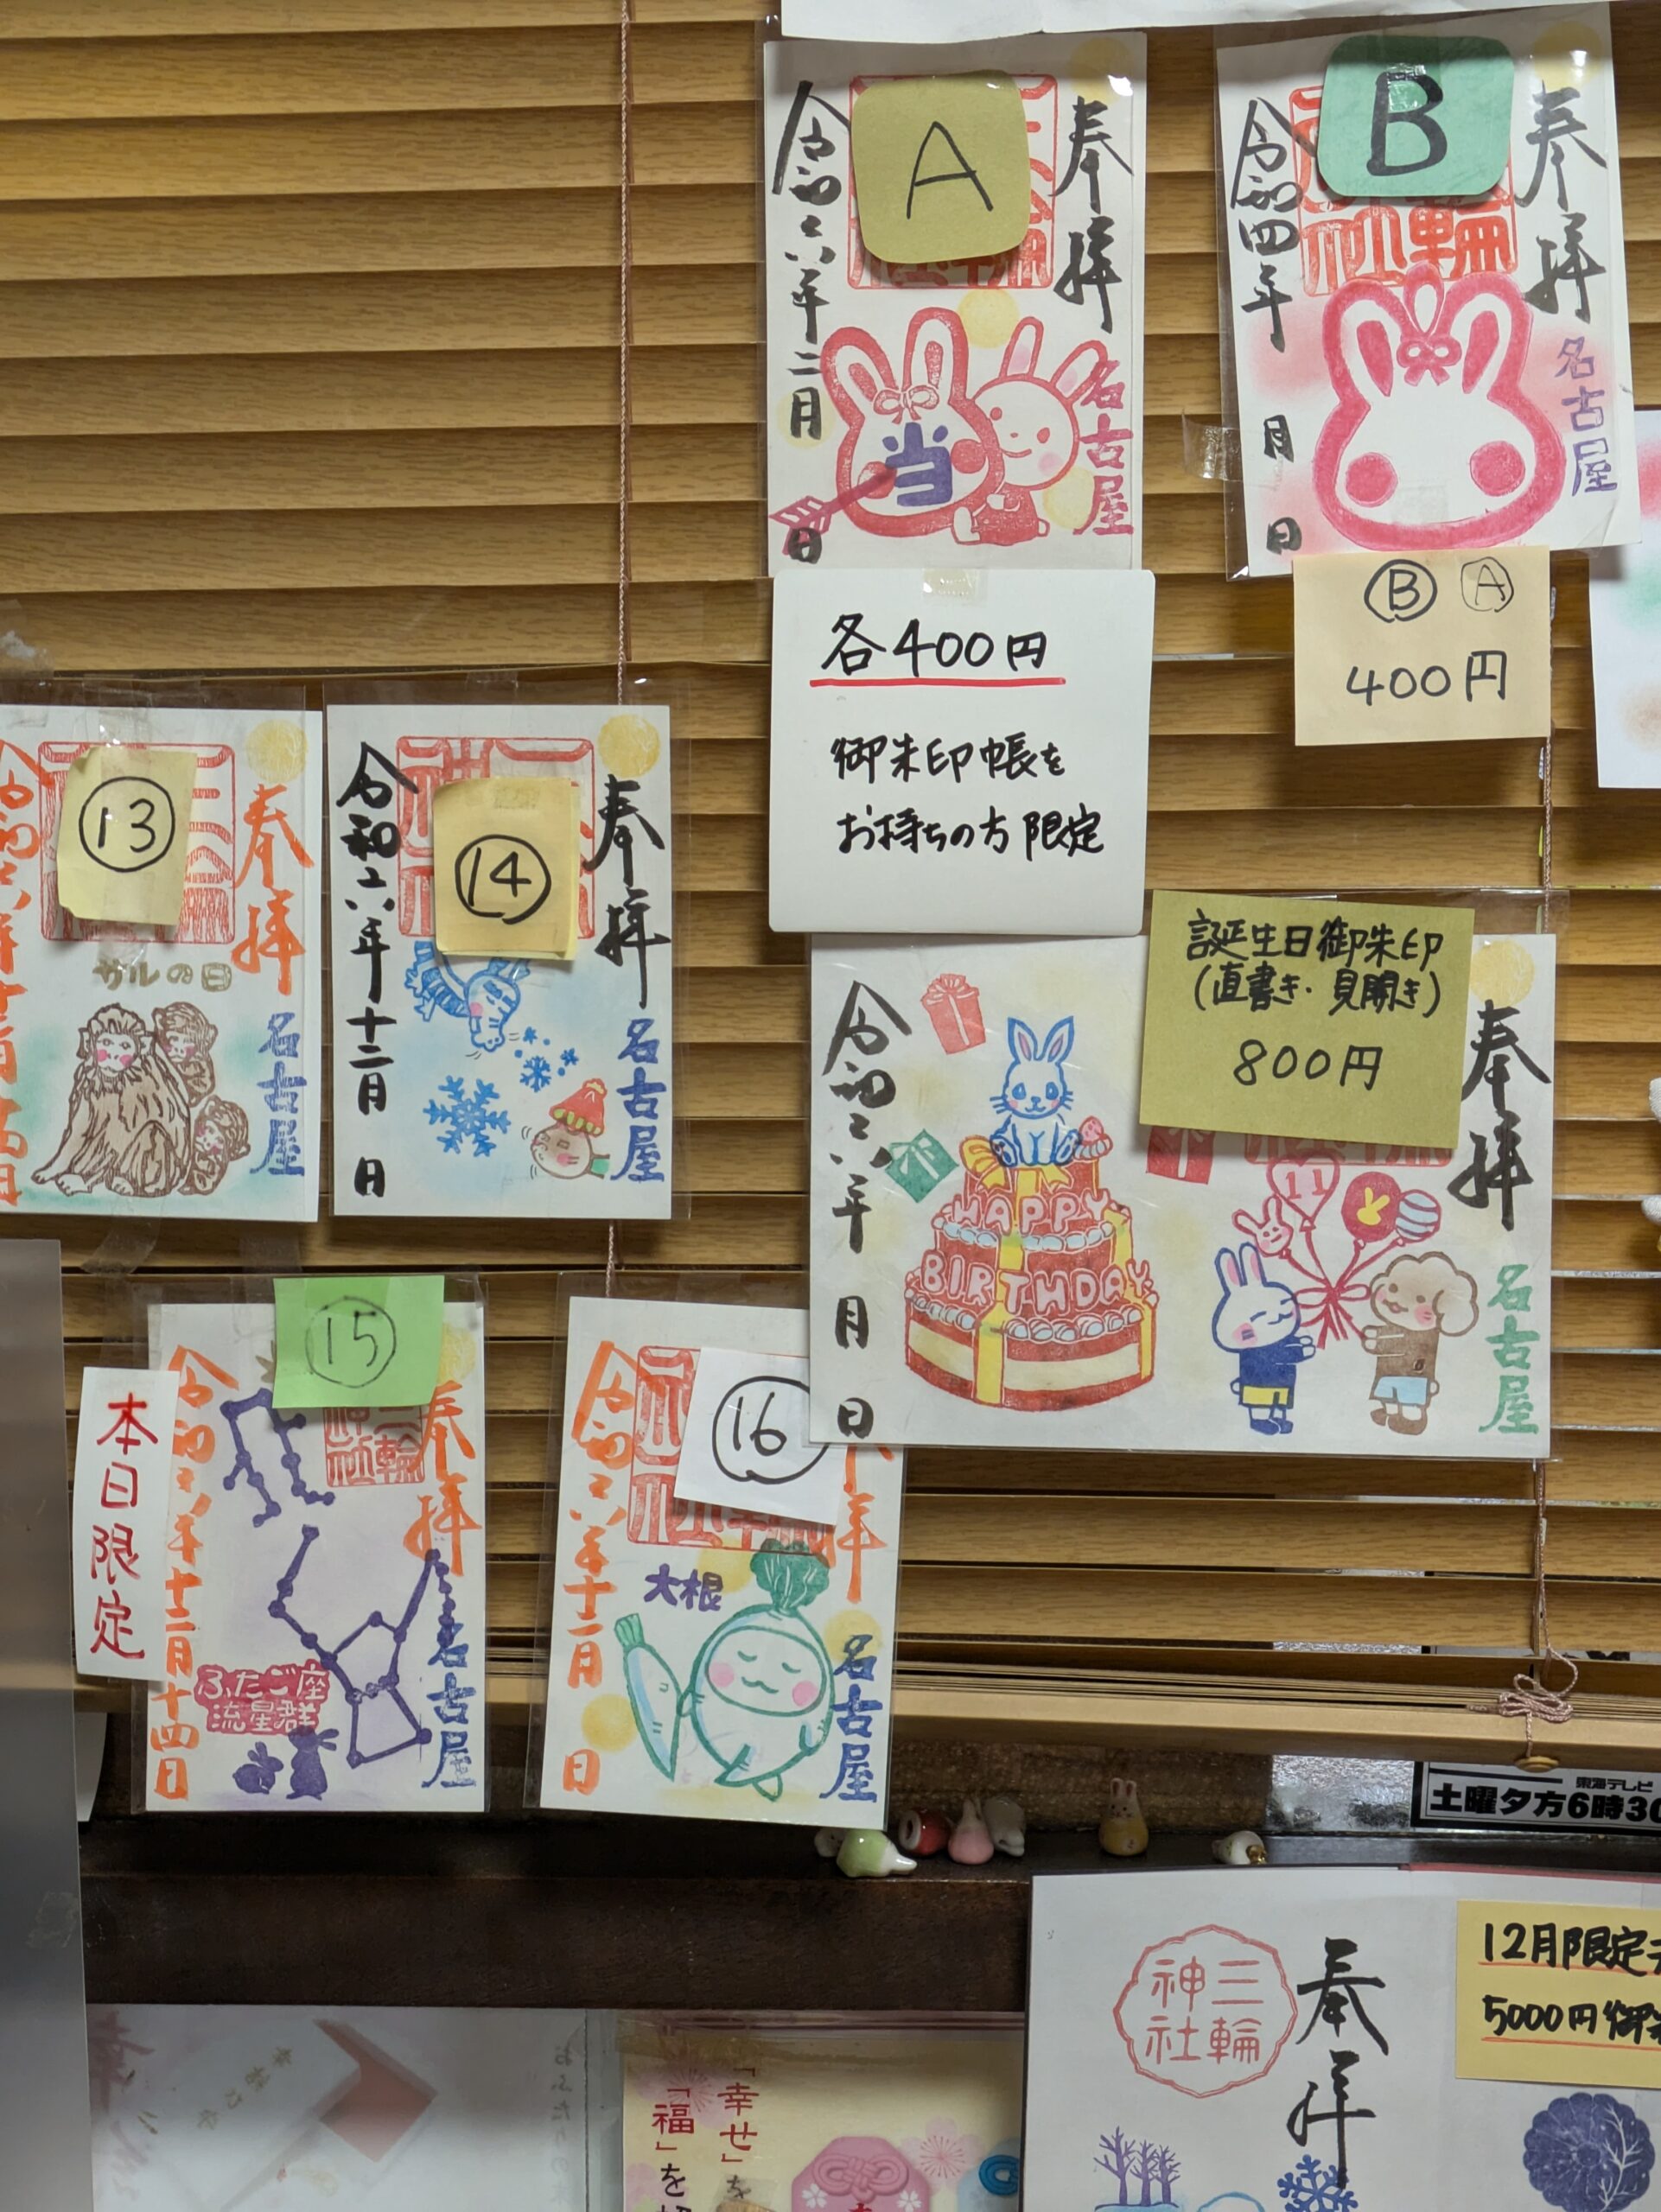 A
奉拝
名古屋
当
令和六年二月
日
B
奉拝
輪
社
名古屋
令和四年
月
日
各400円
御朱印帳を
お持ちの方限定
Ⓑ Ⓐ
400円
⑬
奉拝
サルの日
名古屋
⑭
奉拝
名古屋
令和六年十二月
日
誕生日御朱印
(直書き・見開き)
800円
奉拝
名古屋
11
HAPPY
BIRTHDAY
令和六年
月
日
本日限定
⑮
奉拝
三輪
神社
名古屋
ふたご座
流星群
令和六年十二月十四日
⑯
拝
大根
名古屋
令和六年十二月
日
東海テレビ
土曜夕方6時30
奉拝
三輪
神社
12月限定
5000円御
「幸せ」を
「福」を